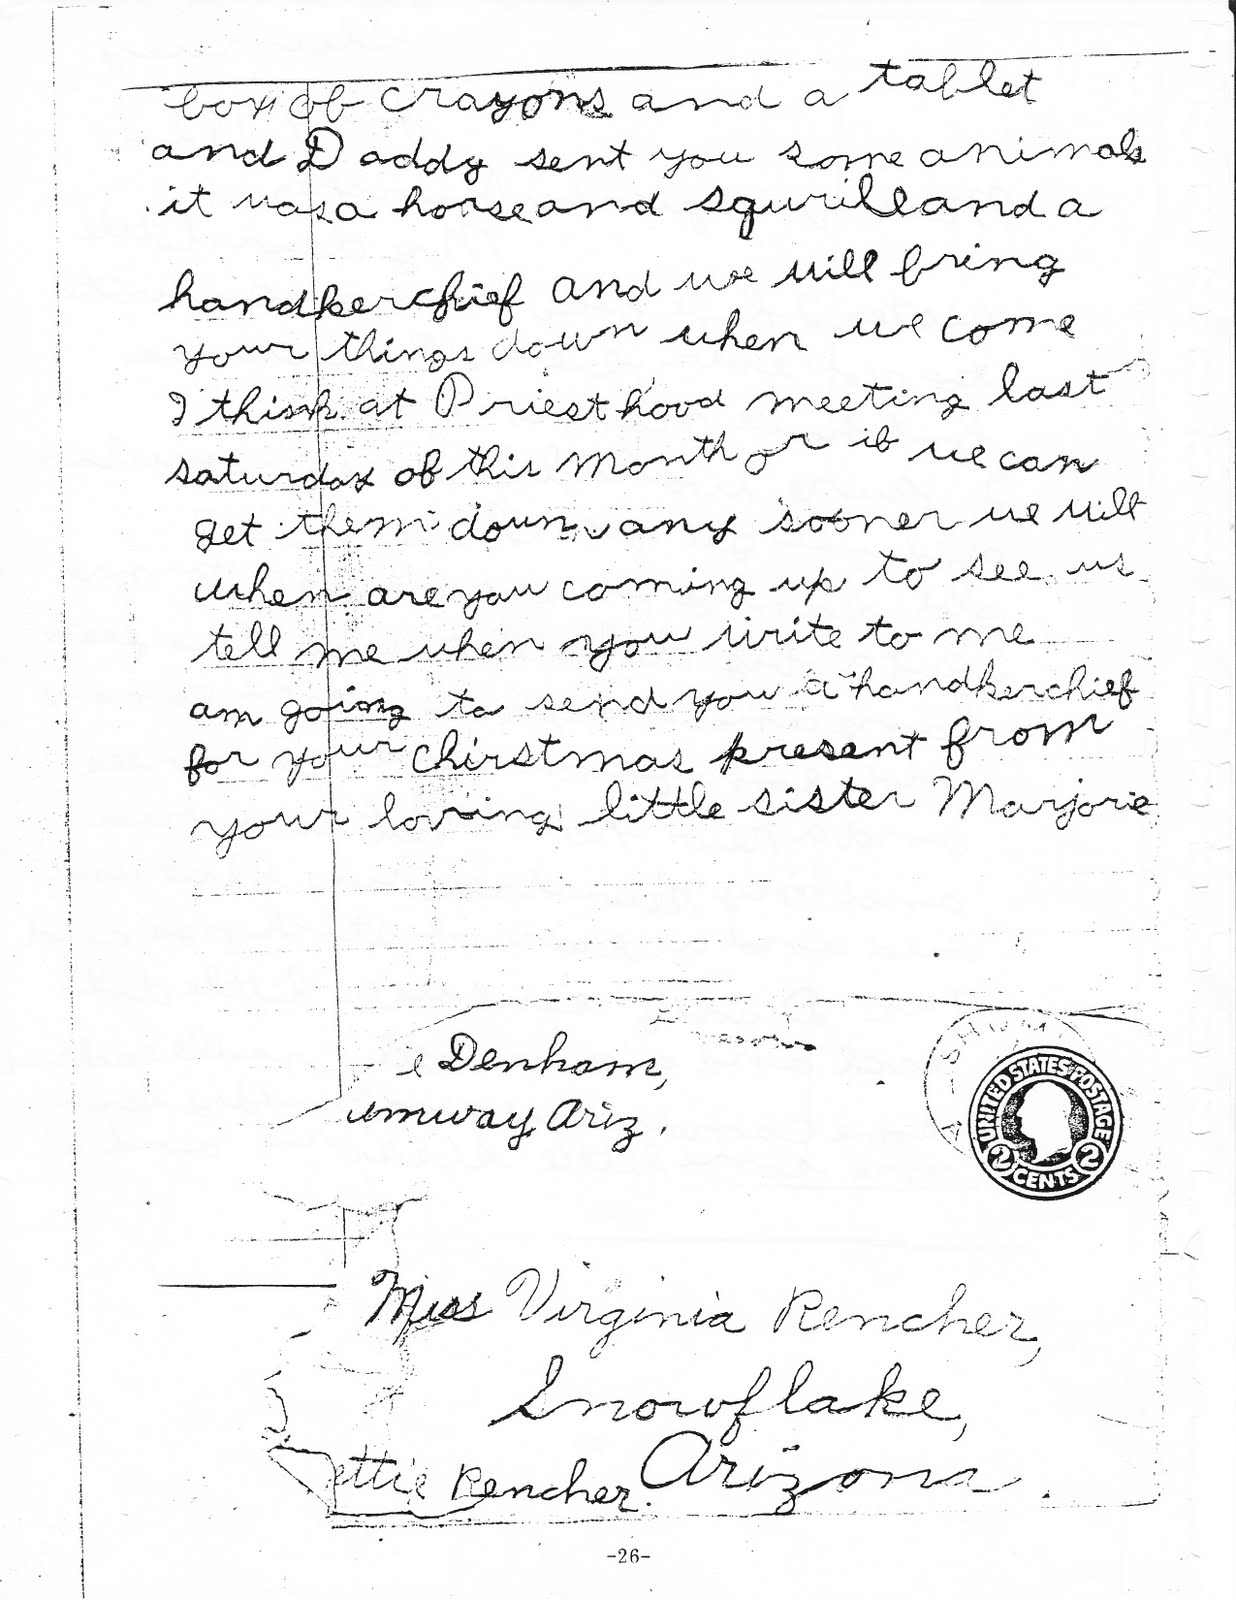 box of crayons and a tablet
and Daddy sent you some animals
it was a horse and squrill and a
handkerchief and we will bring
your things down when we come
I think at Priesthood meeting last
saturday of this month or if we can
get them down any sooner we will
when are you coming up to see us
tell me when you write to me
am going to send you a handkerchief
for your chirstmas present from
your loving little sister Marjorie
e Denham,
umway Ariz.
SHUM
UNITED STATES POSTAGE
2 CENTS 2
Miss Virginia Rencher,
Snowflake,
Arizona.
ettie Rencher.
-26-